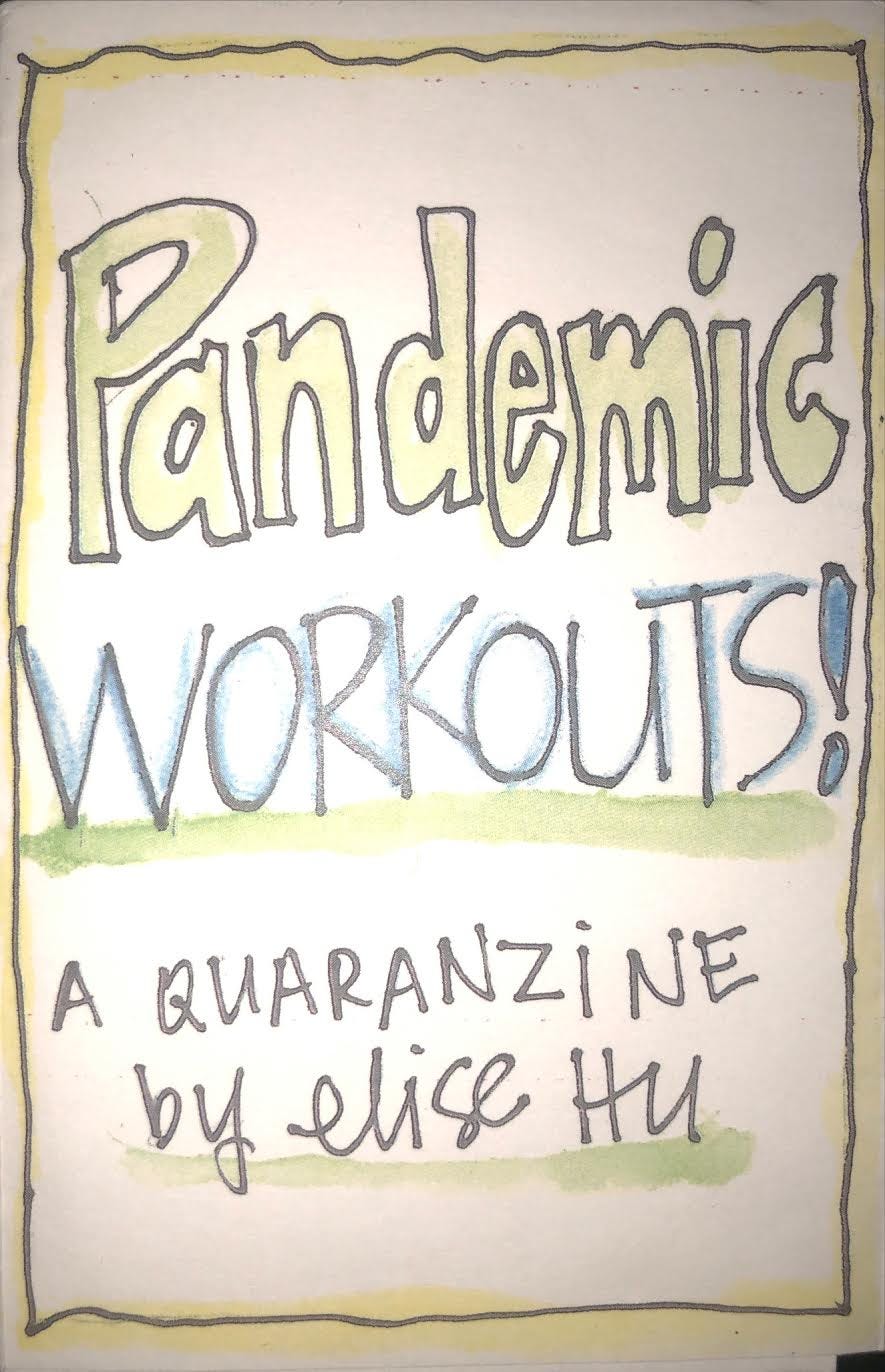 Pandemic
WORKOUTS!
A QUARANZINE
by elise Hu